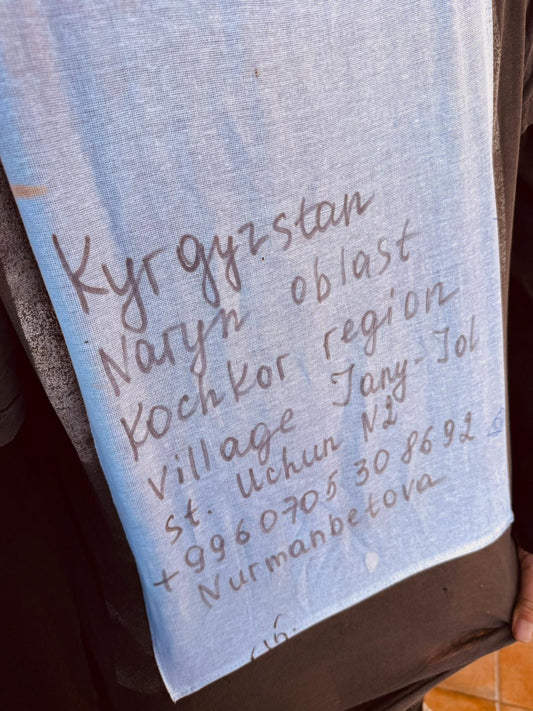 Kyrgyzstan
Naryn oblast
Kochkor region
village Jany-Jol
st. Uchun N2
+996 0705 30 86 92
Nurmanbetova